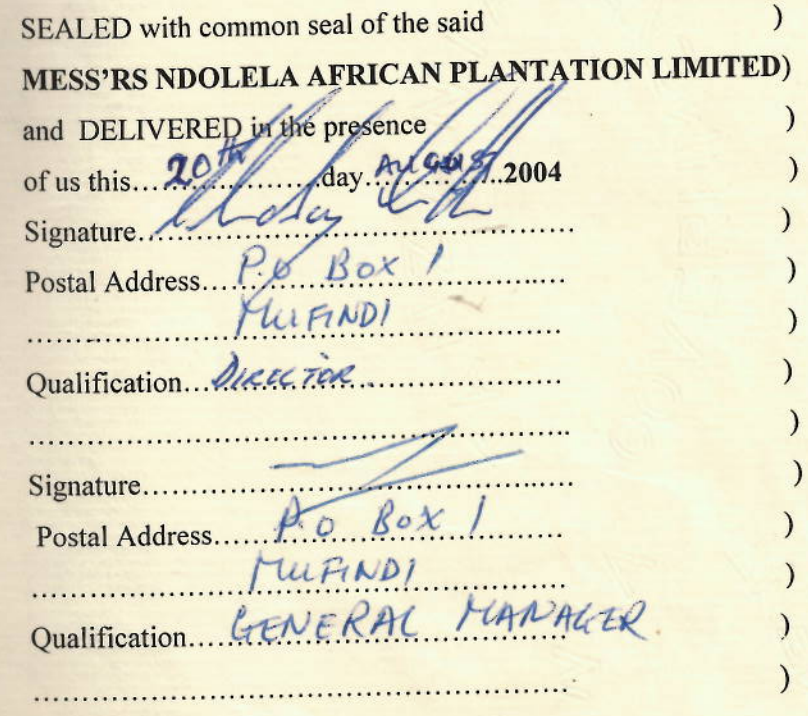 SEALED with common seal of the said )
MESS'RS NDOLELA AFRICAN PLANTATION LIMITED)
and DELIVERED in the presence )
of us this...20th...................day..AUGUST............2004 )
Signature........................................................... )
Postal Address...P.O BOX 1................................ )
................MUFINDI................................ )
Qualification...DIRECTOR................................ )
........................................................................ )
Signature........................................................... )
Postal Address......P.O BOX 1............................ )
................MUFINDI................................ )
Qualification....GENERAL MANAGER )
........................................................................ )